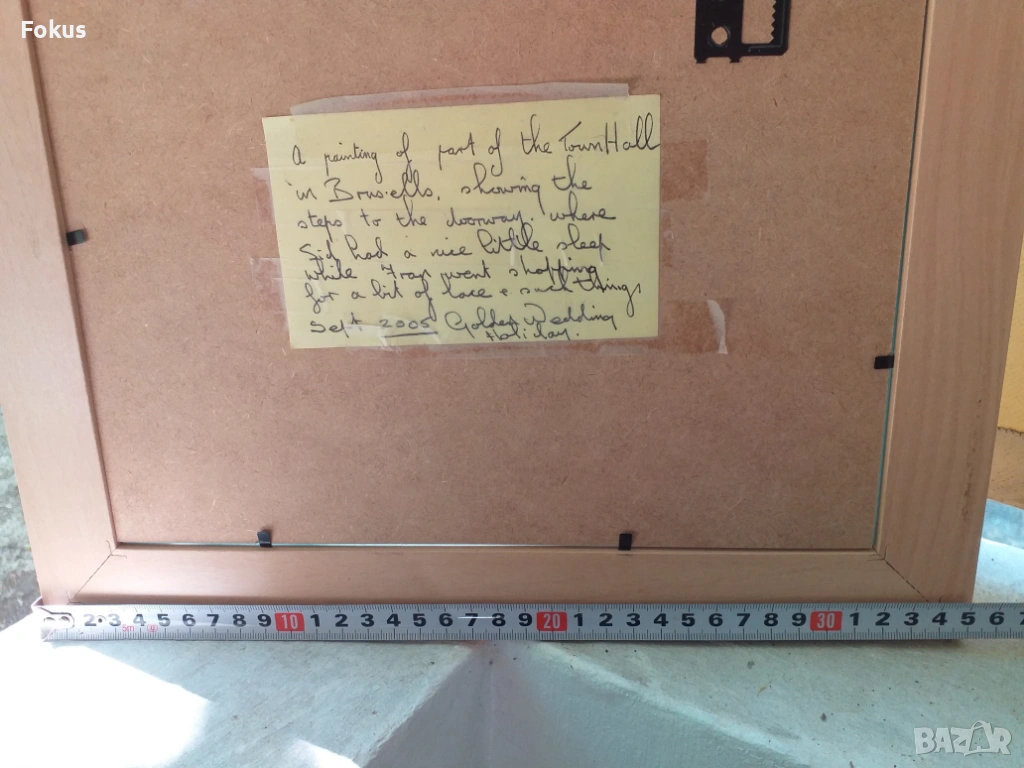 Fokus
A painting of part of the Town Hall
in Brussells, showing the
steps to the doorway. where
Sid had a nice little sleep
while Fran went shopping
for a bit of lace & such things
Sept. 2005 Golden Wedding
Holiday.
2 3 4 5 6 7 8 9 10 1 2 3 4 5 6 7 8 9 20 1 2 3 4 5 6 7 8 9 30 1 2 3 4 5 6 7
5m
BAZAR